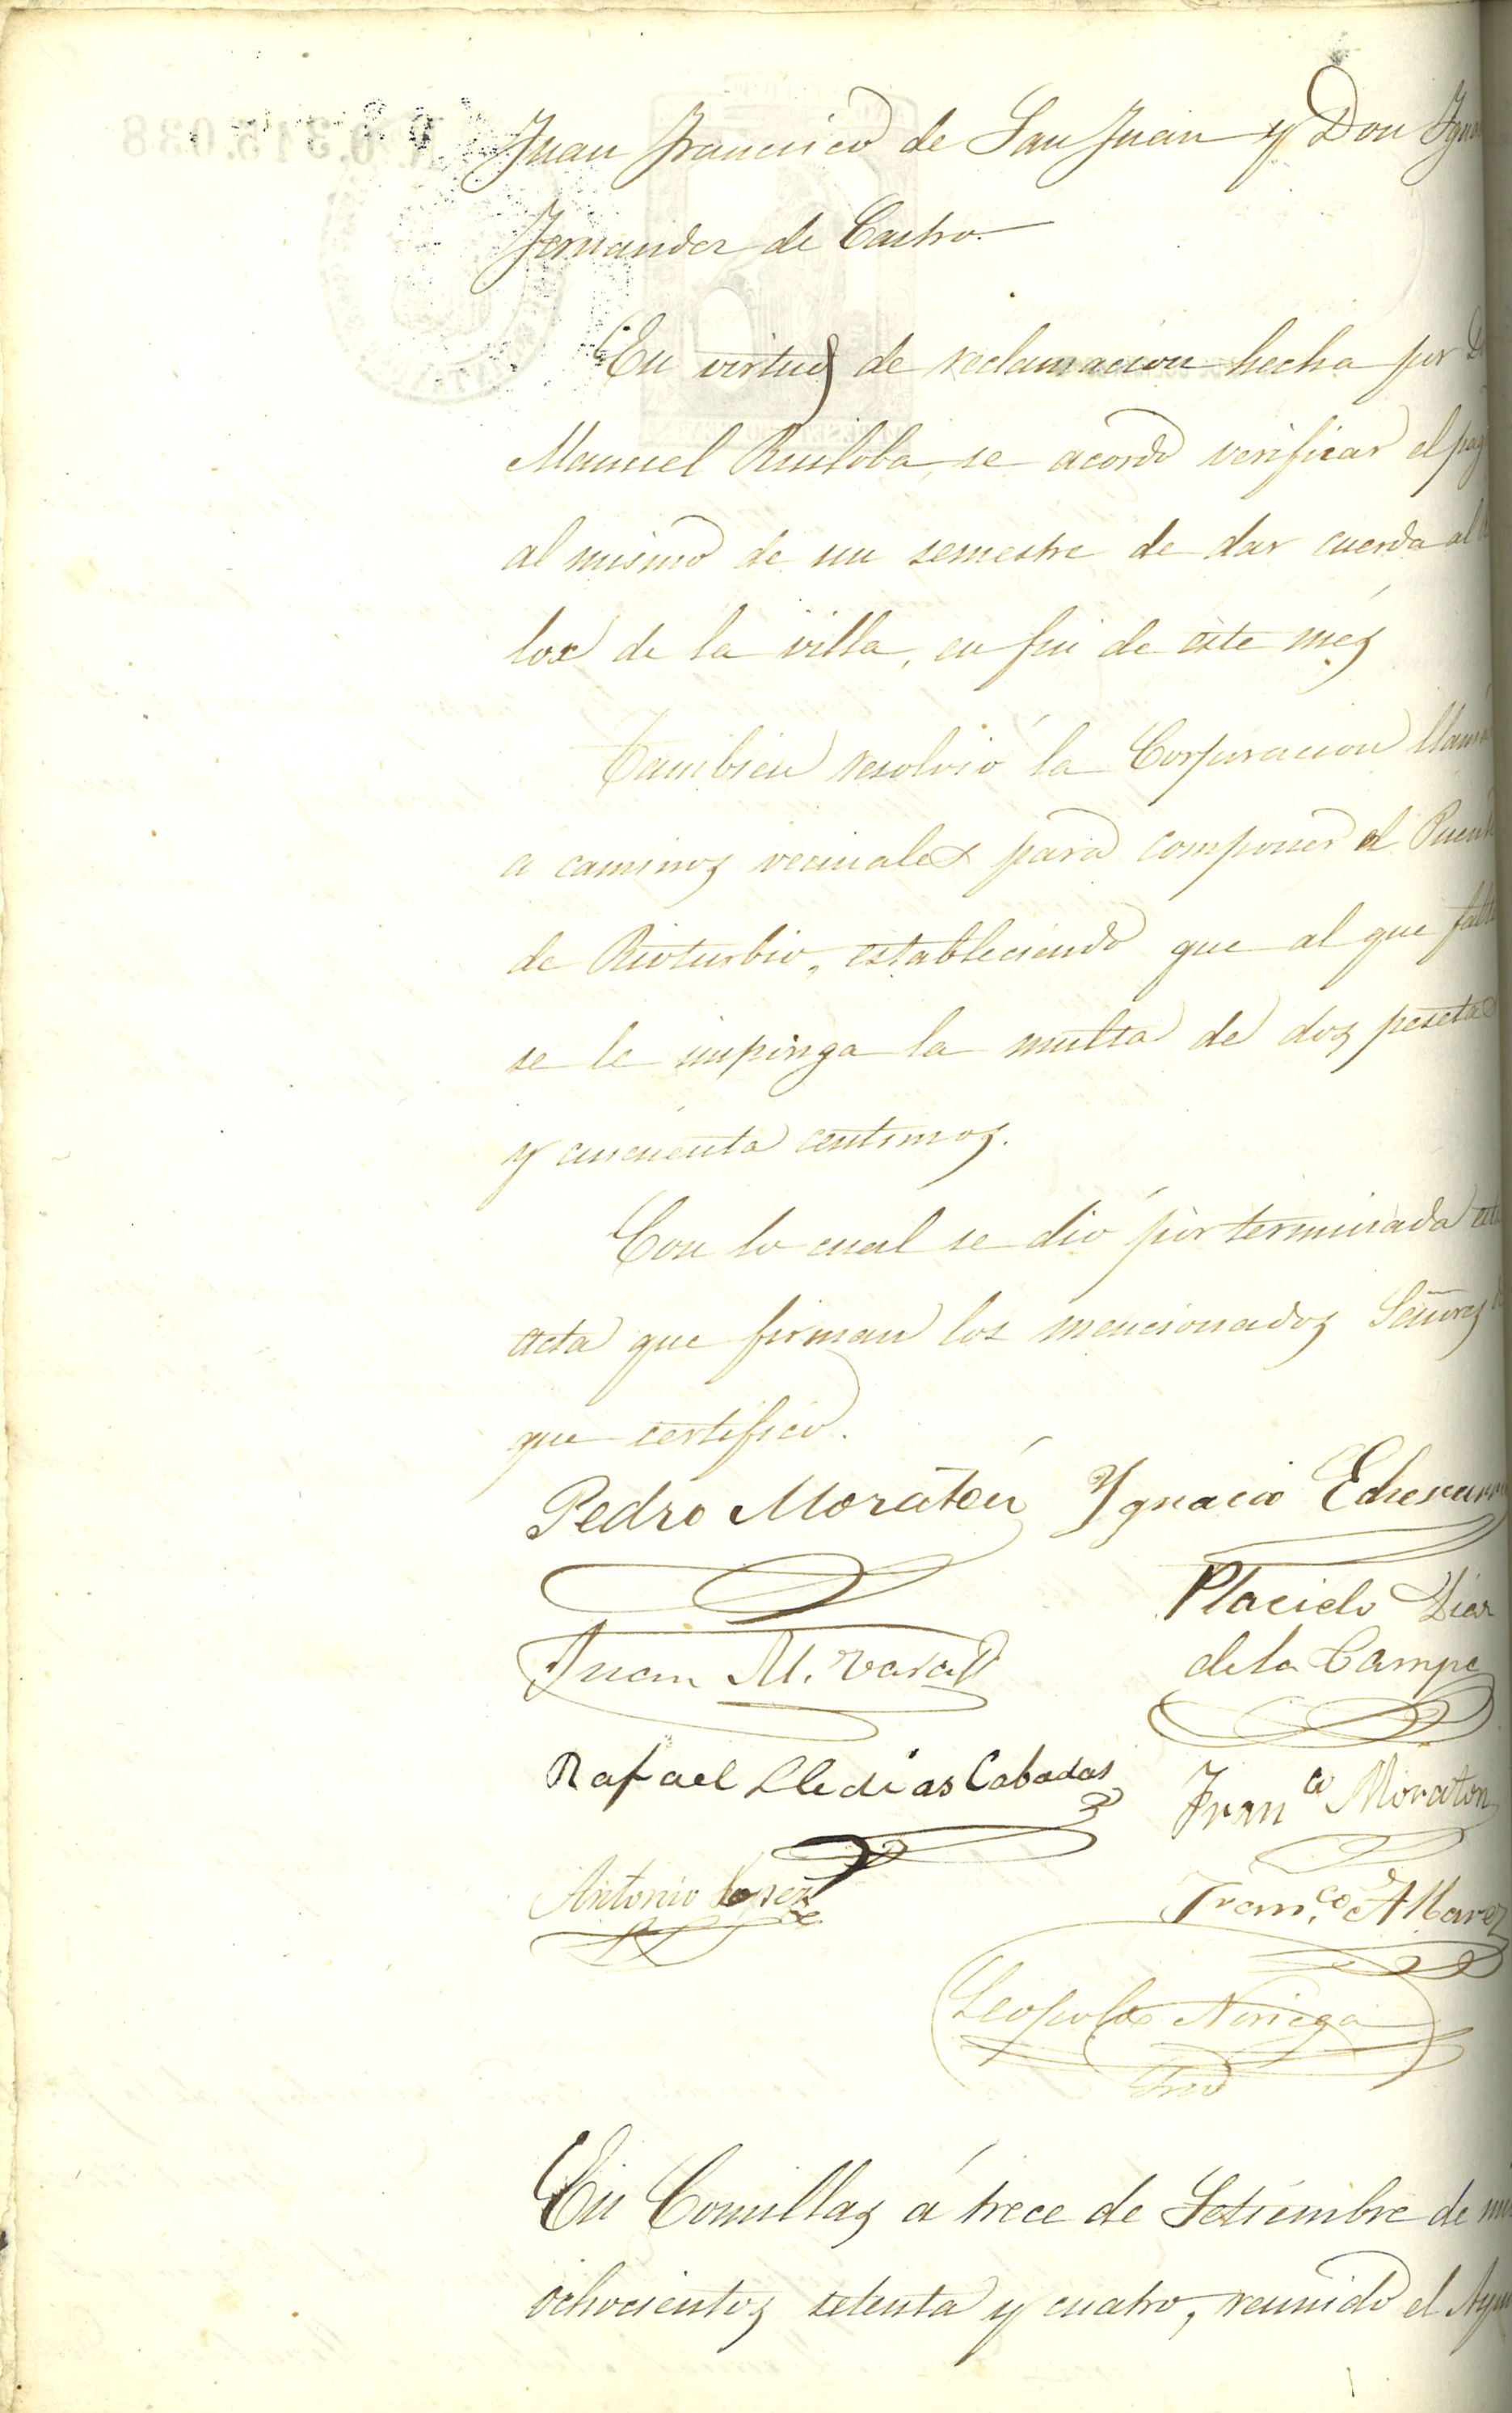 Juan Francisco de San Juan y Don
Fernandez de Castro.
En virtud de reclamacion hecha por
Manuel Ruiloba, se acordó verificar el
al mismo de un semestre de dar cuerda al
lox de la villa, en fin de este mes
Tambien resolvió la Corporacion
a caminos vecinales para componer el
de Rioturbio, estableciendo que al que
se le impinga la multa de dos pesetas
y cincuenta centimos.
Con lo cual se dió por terminada
acta que firman los mencionados Señores
que certifico.
Pedro Moratón Ygnacio
Placido Diaz
Juan M.
de la Campa
Rafael Lledias Cabadas
Fran.co Moraton
Antonio Lopez
Fran.co Albarez
Leopoldo Noriega
Srio
En Comillas á trece de Setiembre de
ochocientos setenta y cuatro, reunido el